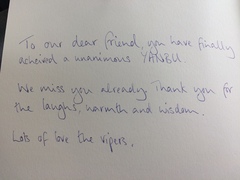 To our dear friend, you have finally
acheived a unanimous YANBU.
We miss you already. Thank you for
the laughs, warmth and wisdom.
Lots of love the vipers.